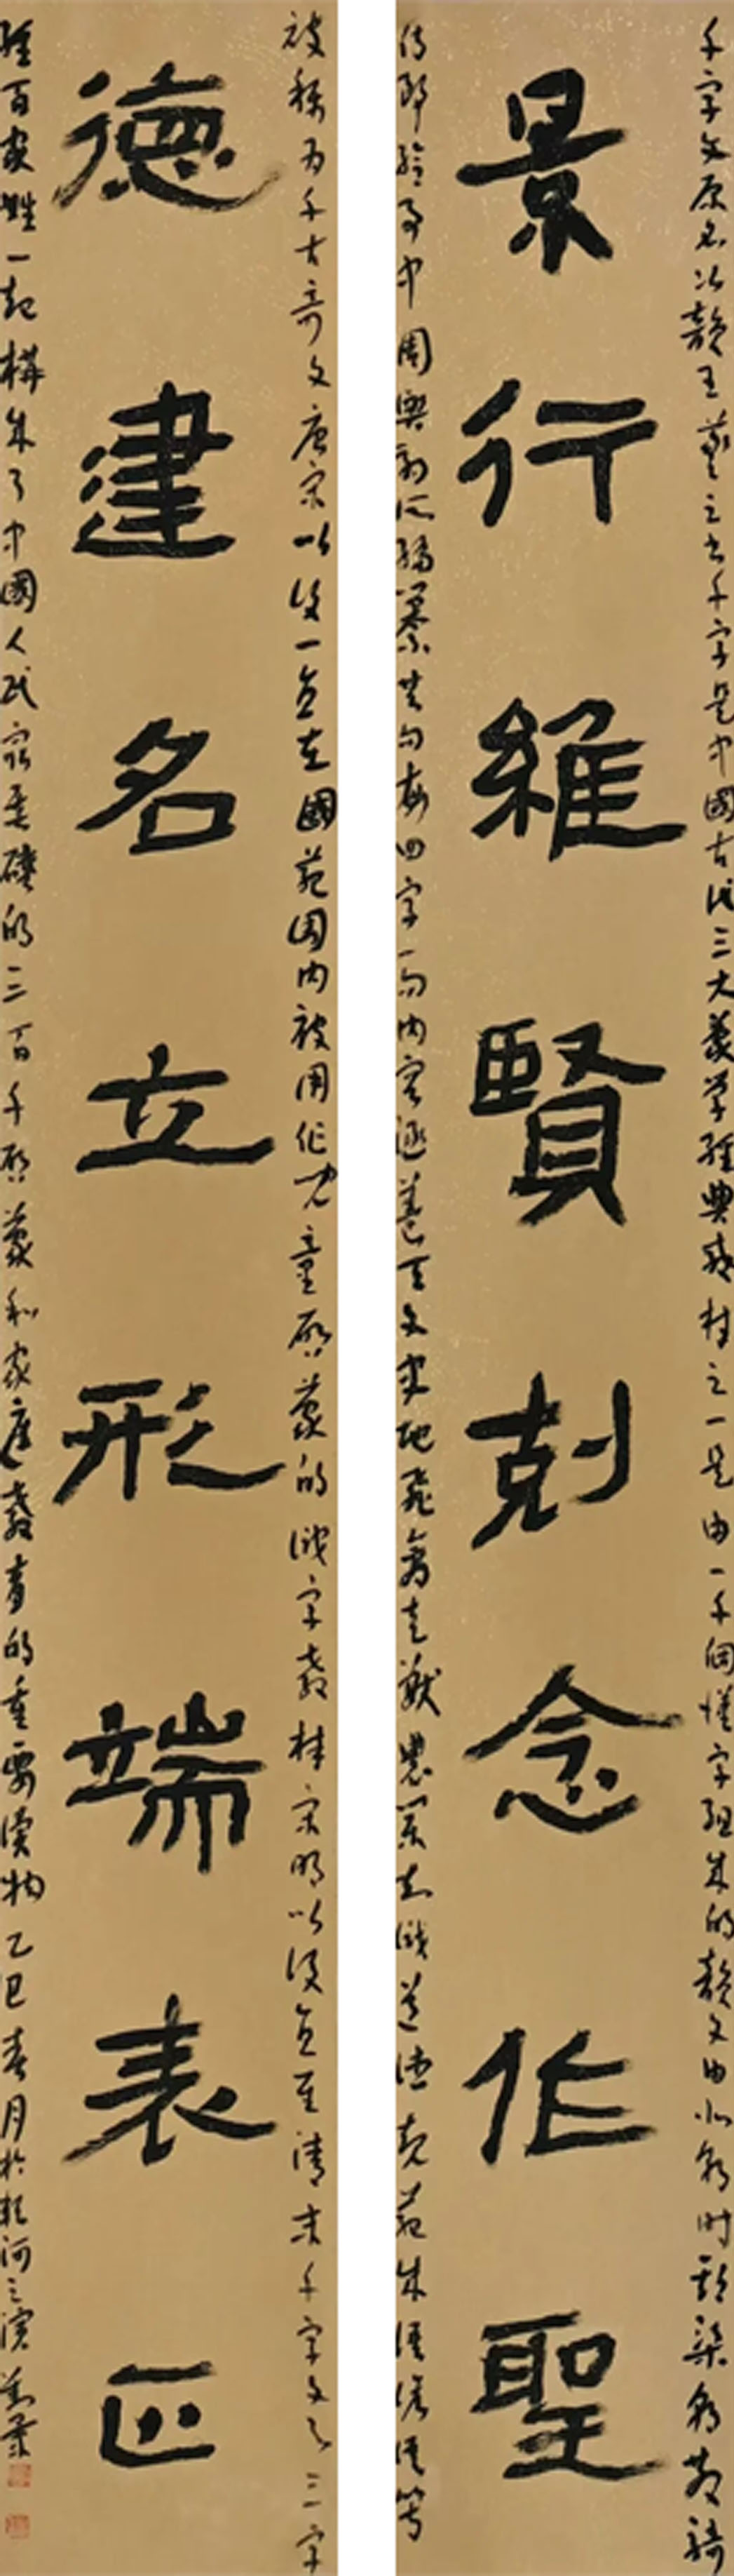 千字文原名次韻王羲之書千字是中國古代三大蒙學經典教材之一是由一千個漢字組成的韻文由北朝時期梁朝散騎
景行維賢剋念作聖
侍郎給事中周興嗣所編纂共句每四字一句內容涵蓋天文史地飛禽走獸農業知識道德規範等
被稱為千古奇文唐宋以後一直在國範圍內被用作兒童啟蒙的識字教材宋明以後直至清末千字文與三字
德建名立形端表正
經百家姓一起構成了中國人民最基礎的三百千啟蒙和家庭教育的重要讀物乙巳春月於河之濱